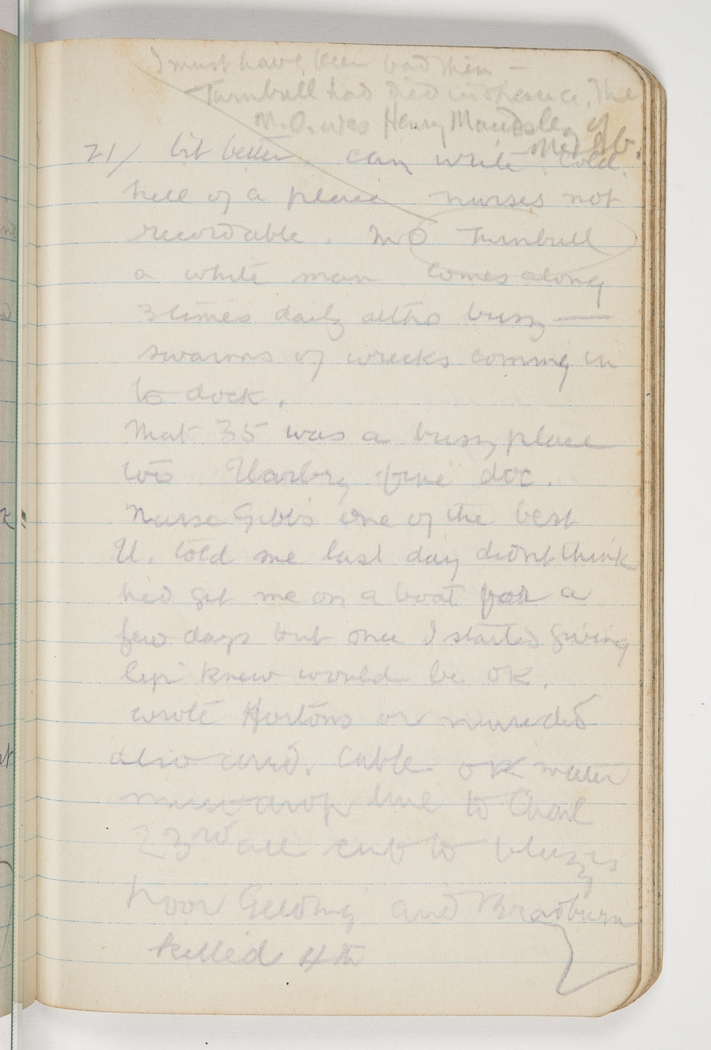 I must have been bad then —
Turnbull had died in France. The
M.O. was Henry Maudsley of
Melb.
21/ bit better. can write. Cold
hell of a place nurses not
recordable. MO Turnbull
a white man comes along
3 times daily altho busy —
swarms of wrecks coming in
to dock.
That 35 was a busy place
too. fine doc.
Nurse Gibbs one of the best
U. told me last day didnt think
he'd get me on a boat for a
few days but once I started giving
lip knew would be OK.
wrote Hortons or nurse did
also and. Cable. OK mater
must drop line to Charl
23rd all cut to blazes
Poor and Bradburn
killed 4th